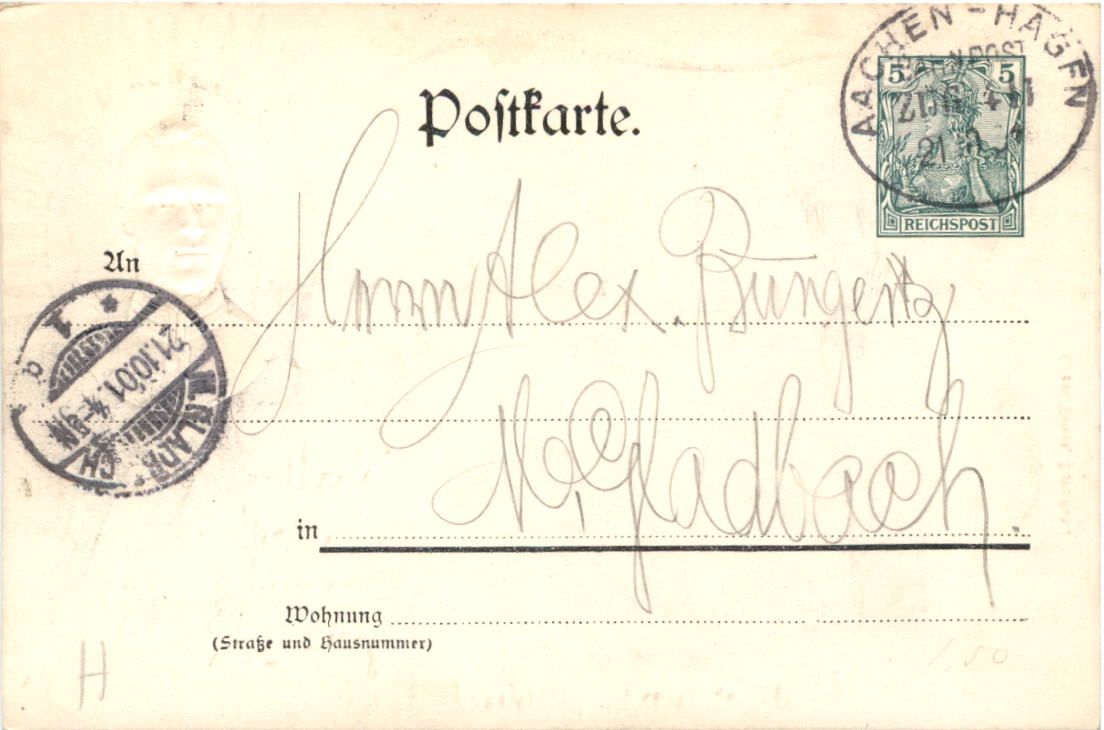 AACHEN - HAGEN
BAHNPOST
5 5
ZUG
21
REICHSPOST
Postkarte.
An
Herrn Alex. Bungertz
21.10.01. 4-5N
M. GLADBACH
in M. Gladbach.
Wohnung
(Straße und Hausnummer)
H
1,50